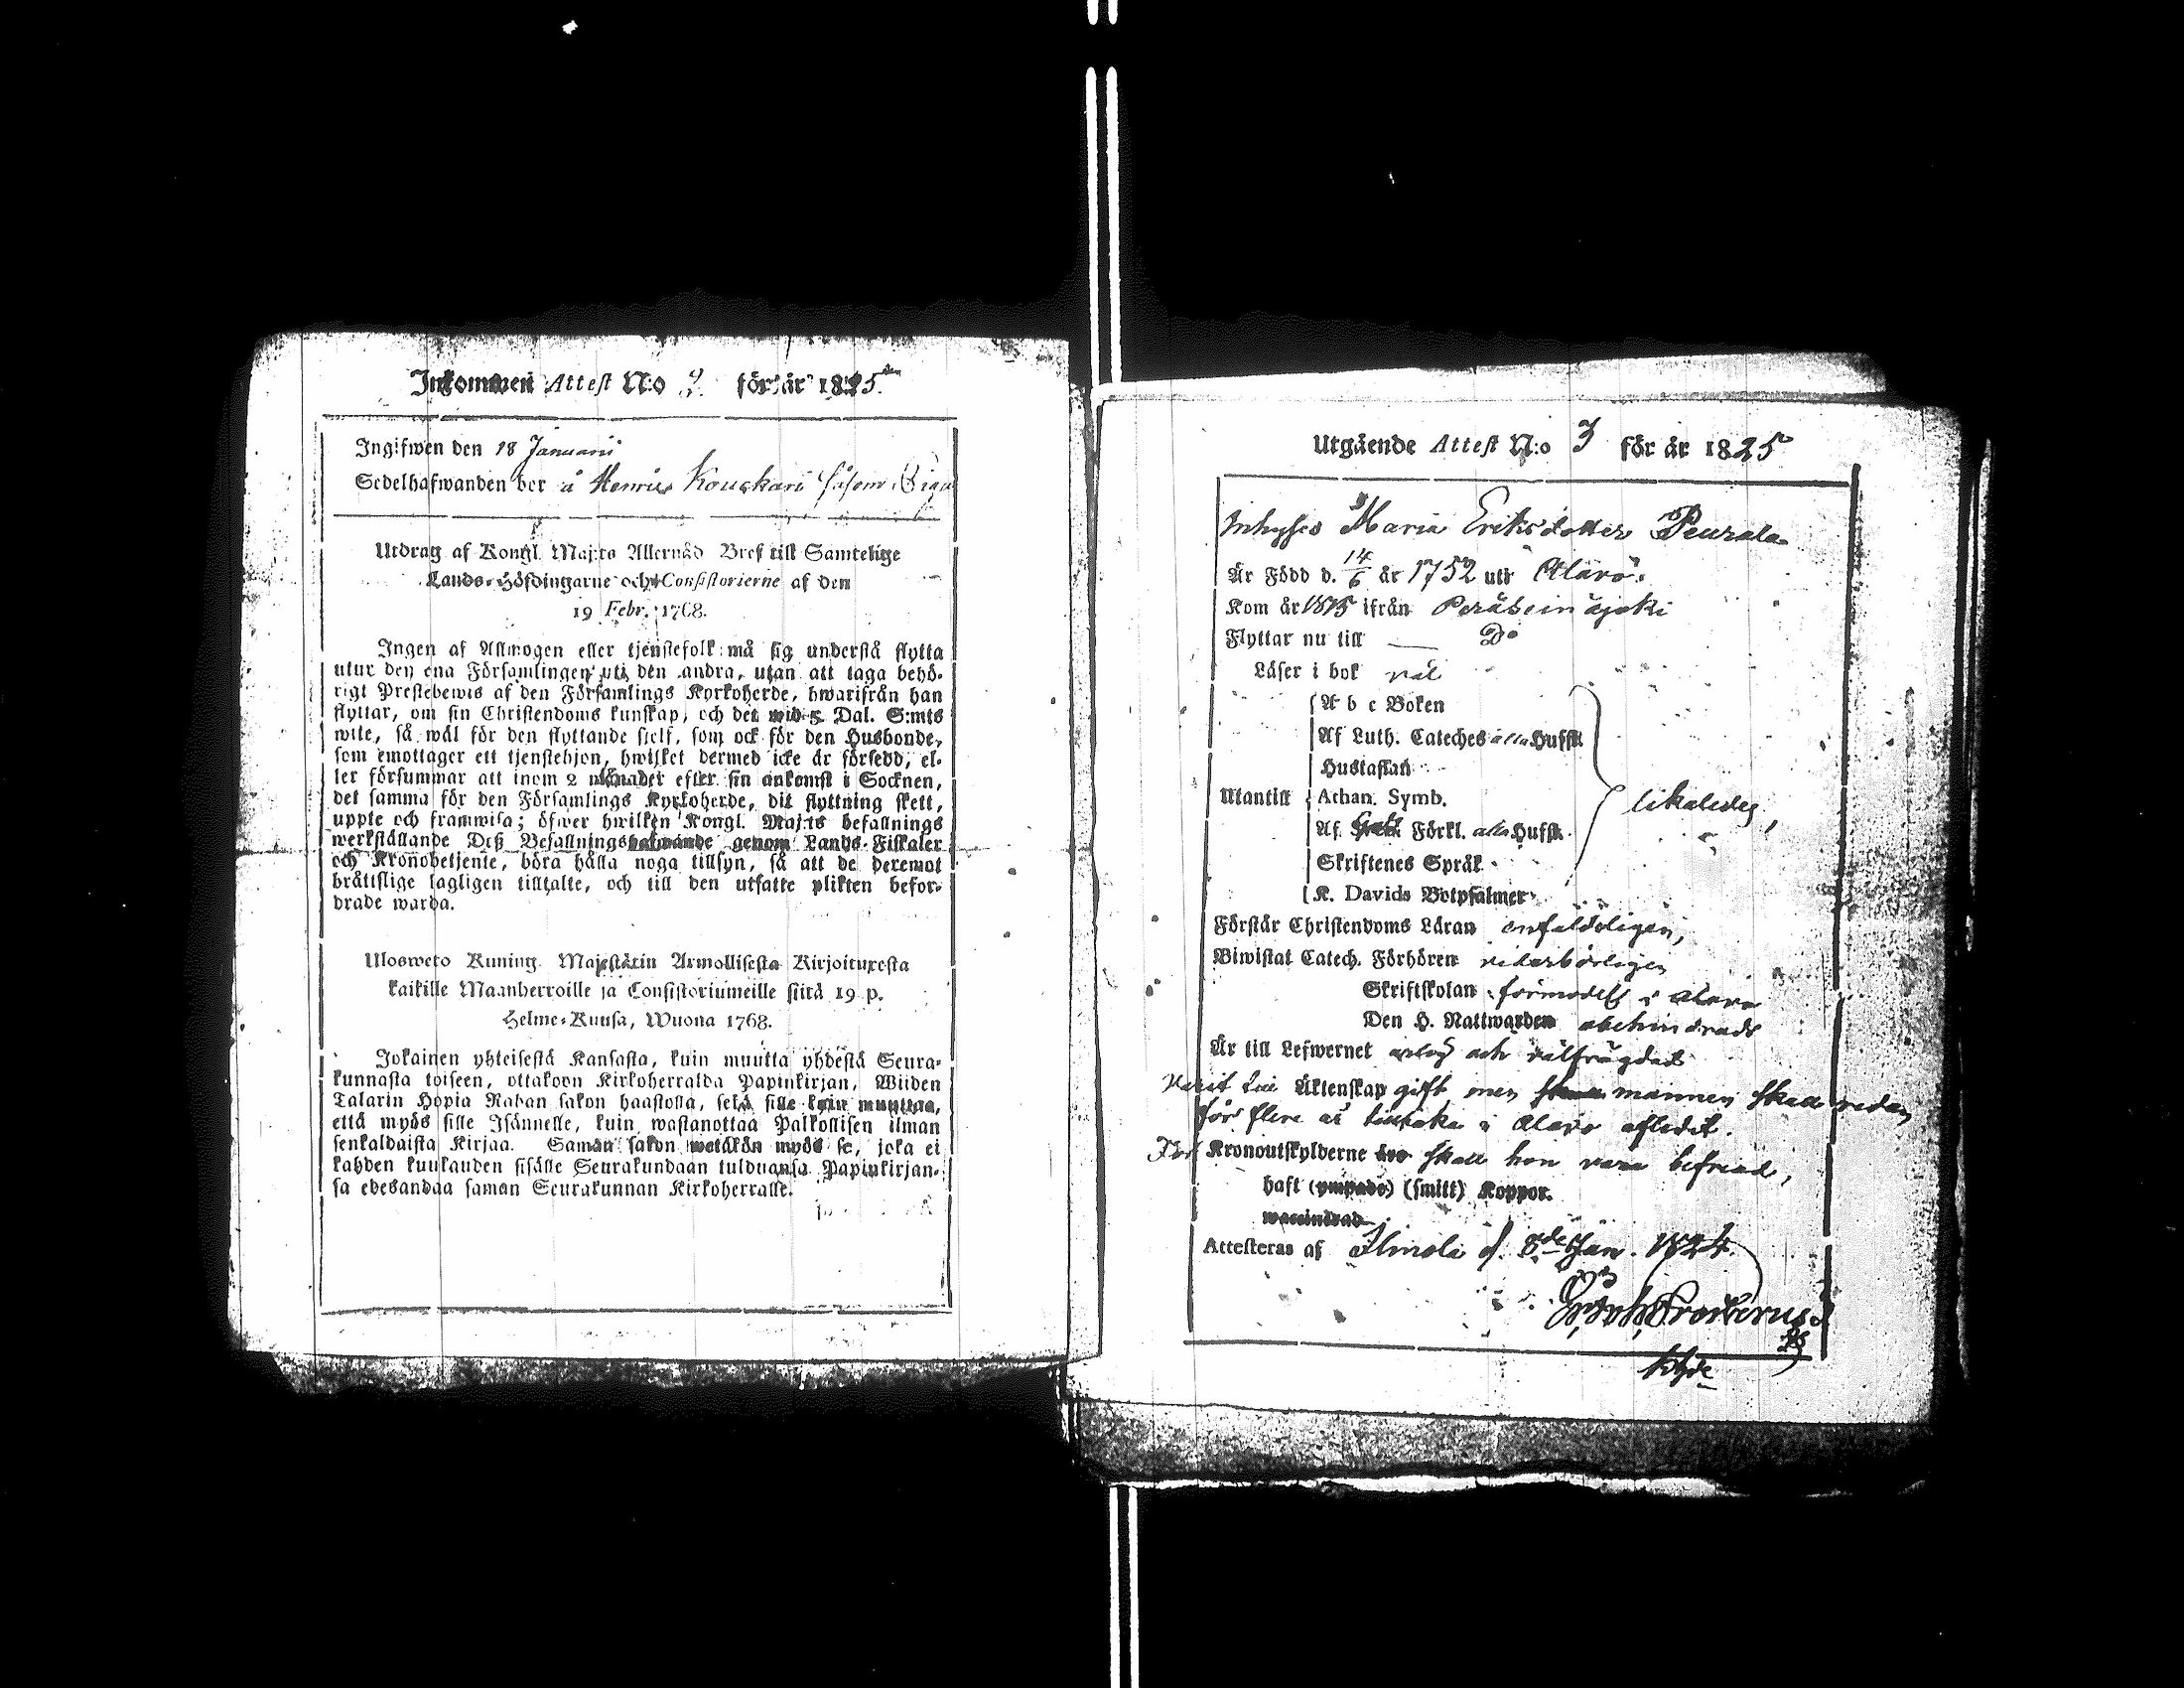 Inkommen Attest N:o 9 för år 1825.
Ingifwen den 18 Januarii
Sedelhafwanden bor å Henrics Kouckari såsom
Utdrag af Kongl. Maj:ts Allernåd. Bref till Samtelige
Lands-Höfdingarne och Consistorierne af den
19 Febr. 1768.
Ingen af Allmogen eller tjenstefolk må sig understå flytta
utur den ena Församlingen uti den andra, utan att taga behö-
rigt Prestebewis af den Församlings Kyrkoherde, hwarifrån han
flyttar, om sin Christendoms kunskap, och det wid 5 Dal. S:mts
wite, så wäl för den flyttande sjelf, som ock för den Husbonde,
som emottager ett tjenstehjon, hwilket dermed icke är försedd, el-
ler försummar att inom 2 månader efter sin ankomst i Socknen,
det samma för den Församlings Kyrkoherde, dit flyttning skett,
uppte och framwisa; öfwer hwilken Kongl. Maj:ts befallnings
werkställande Deß Befallningshafwande genom Lands-Fiskaler
och Kronobetjente, böra hålla noga tillsyn, så att de deremot
bråttslige lagligen tilltalte, och till den utsatte plikten befor-
drade warda.
Ulosweto Kuning. Majestätin Armollisesta Kirjoituxesta
kaikille Maanherroille ja Consistoriumeille siitä 19 p.
Helme-Kuusa, Wuona 1768.
Jokainen yhteisestä Kansasta, kuin muutta yhdestä Seura-
kunnasta toiseen, ottakoon Kirkoherralda Papinkirjan, Wiiden
Talarin Hopia Rahan sakon haastolla, sekä sille kuin muuttaa,
että myös sille Isännelle, kuin wastanottaa Palkollisen ilman
senkaldaista Kirjaa. Saman sakon wetäkön myös se, joka ei
kahden kuukauden sisälle Seurakundaan tulduansa Papinkirjan-
sa edesandaa saman Seurakunnan Kirkoherralle.
Utgående Attest N:o 3 för år 1825
Inhyses Maria Eriksdotter Peurala
Är Född d. 14/6 år 1752 uti Alavo.
Kom år 1815 ifrån Peräseinäjoki
Flyttar nu till — Do
Läser i bok väl
A b c Boken
Af Luth. Cateches alla Hufst.
Hustaflan
Utantill Athan. Symb. likaledes,
Af Förkl. alla Hufst.
Skriftenes Språk
K. Davids Botpsalmer
Förstår Christendoms Läran enfaldeligen,
Biwistat Catech. Förhören vederbörligen
Skriftskolan förmodeligt i Alavo
Den H. Nattwarden obehindrade
Är till Lefwernet ärlig och välfrägdad
Varit i Äktenskap gift, men mannen skall redan
för flere år tillbaka i Alavo aflidit.
För Kronoutskylderne skall hon vara befriad,
haft (ympade) (smitt) Koppor.
waccinerad
Attesteras af Ilmola d. 8de Jan. 1824.